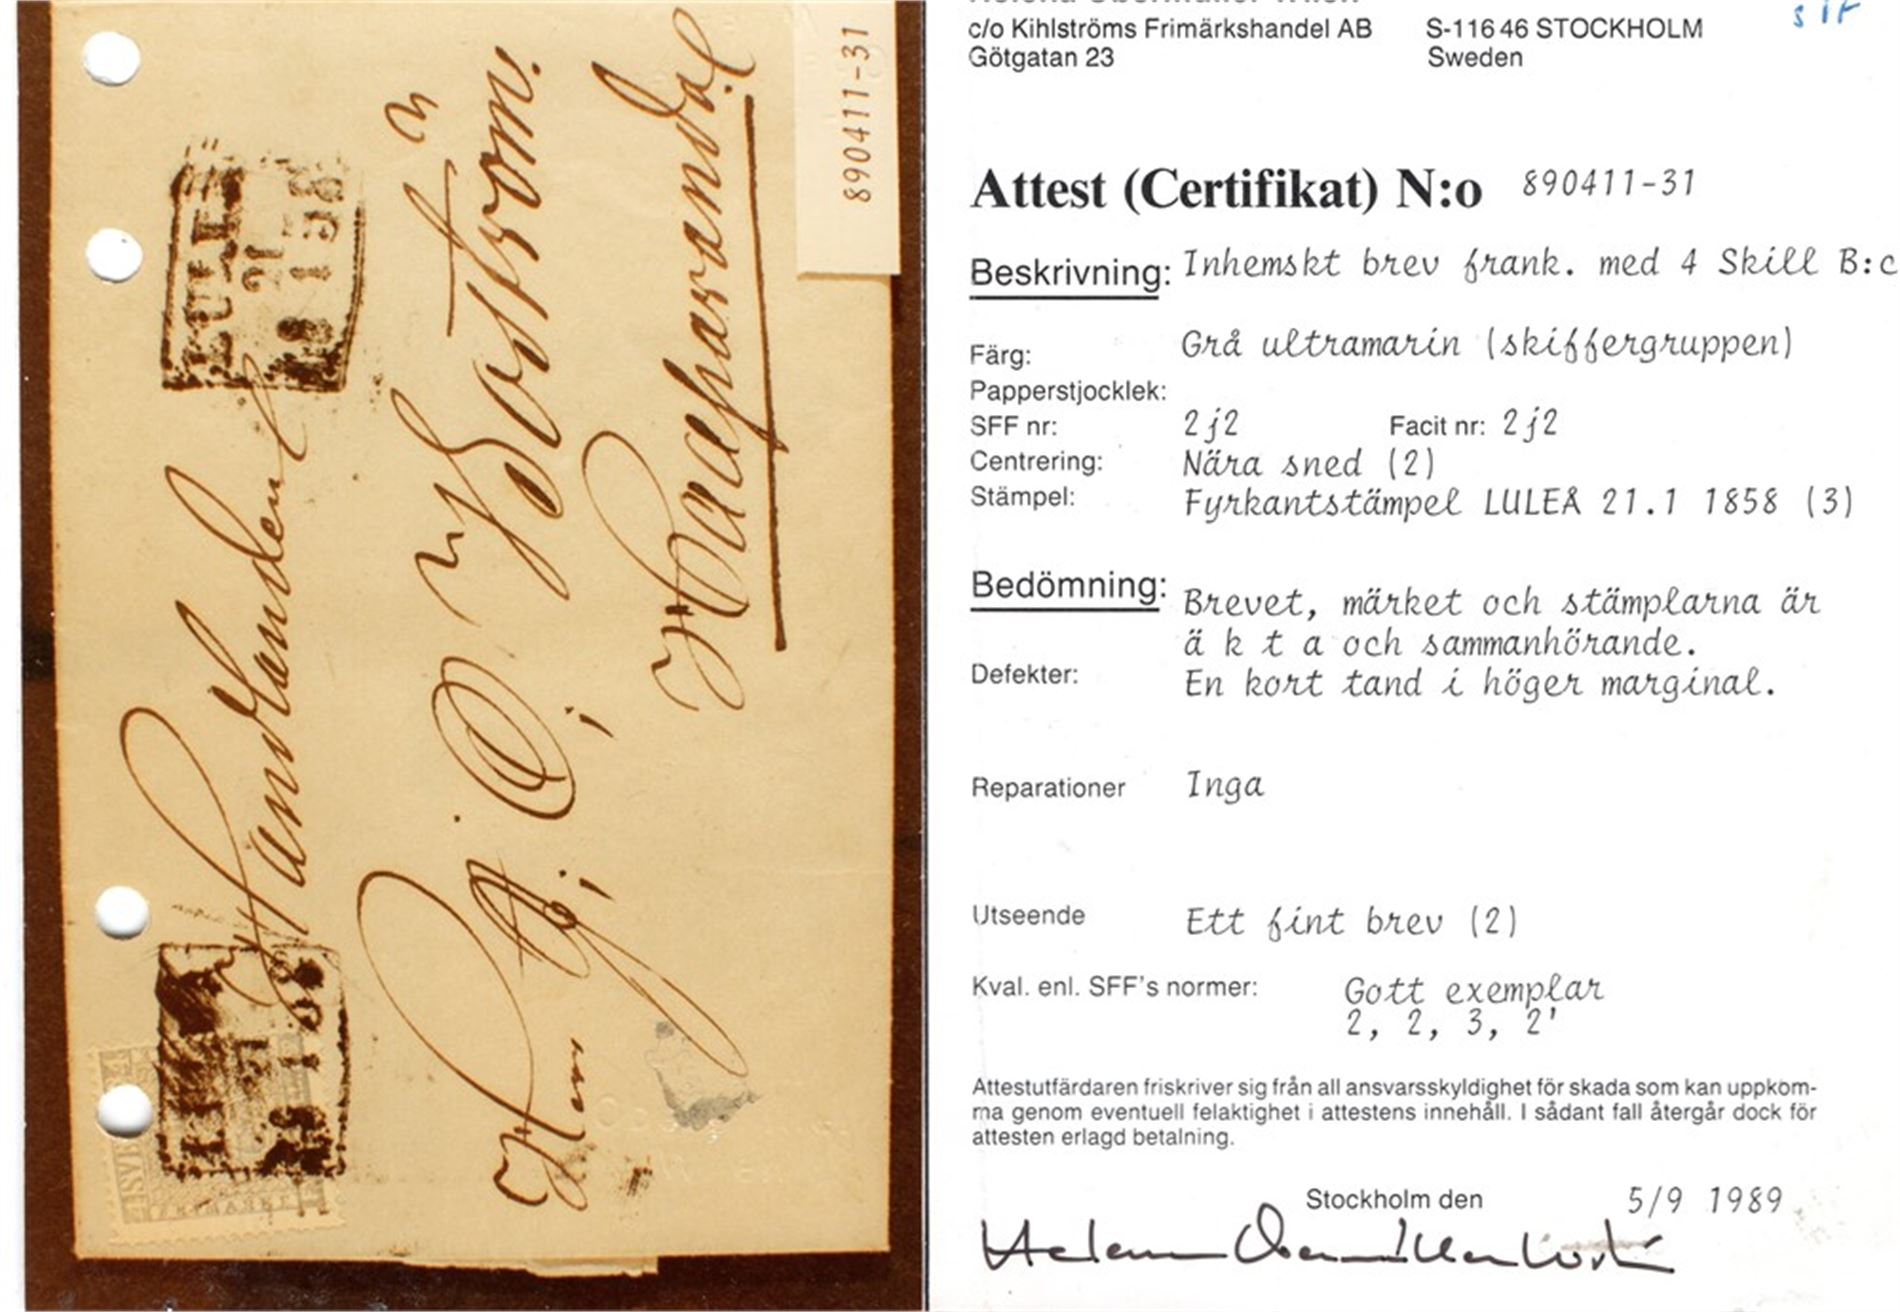 890411-31
LULEÅ
21
1 1858
Handlanden
Herr
Boström.
Haaparanda
LULEÅ
21
1 1858
c/o Kihlströms Frimärkshandel AB S-116 46 STOCKHOLM
Götgatan 23 Sweden
Attest (Certifikat) N:o 890411-31
Beskrivning: Inhemskt brev frank. med 4 Skill B:c
Färg: Grå ultramarin (skiffergruppen)
Papperstjocklek:
SFF nr: 2j2 Facit nr: 2j2
Centrering: Nära sned (2)
Stämpel: Fyrkantstämpel LULEÅ 21.1 1858 (3)
Bedömning: Brevet, märket och stämplarna är
ä k t a och sammanhörande.
Defekter: En kort tand i höger marginal.
Reparationer Inga
Utseende Ett fint brev (2)
Kval. enl. SFF's normer: Gott exemplar
2, 2, 3, 2'
Attestutfärdaren friskriver sig från all ansvarsskyldighet för skada som kan uppkom-
ma genom eventuell felaktighet i attestens innehåll. I sådant fall återgår dock för
attesten erlagd betalning.
Stockholm den 5/9 1989